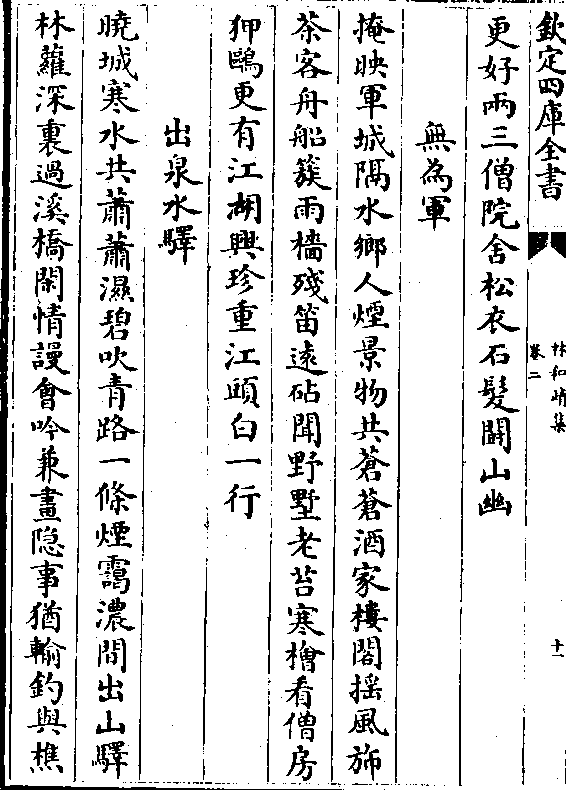 欽定四庫全書
林和靖集
卷二
十一
更好兩三僧院舍松衣石髮鬬山幽
無為軍
掩映軍城隔水鄉人煙景物共蒼蒼酒家樓閣揺風斾
茶客舟船簇雨檣殘笛逺砧聞野墅老苔寒檜看僧房
狎鷗更有江湖興珍重江頭白一行
出泉水驛
曉城寒水共蕭蕭濕碧吹青路一條煙靄濃間出山驛
林蘿深裏過溪橋閑情謾會吟兼畫隐事猶輸釣與樵